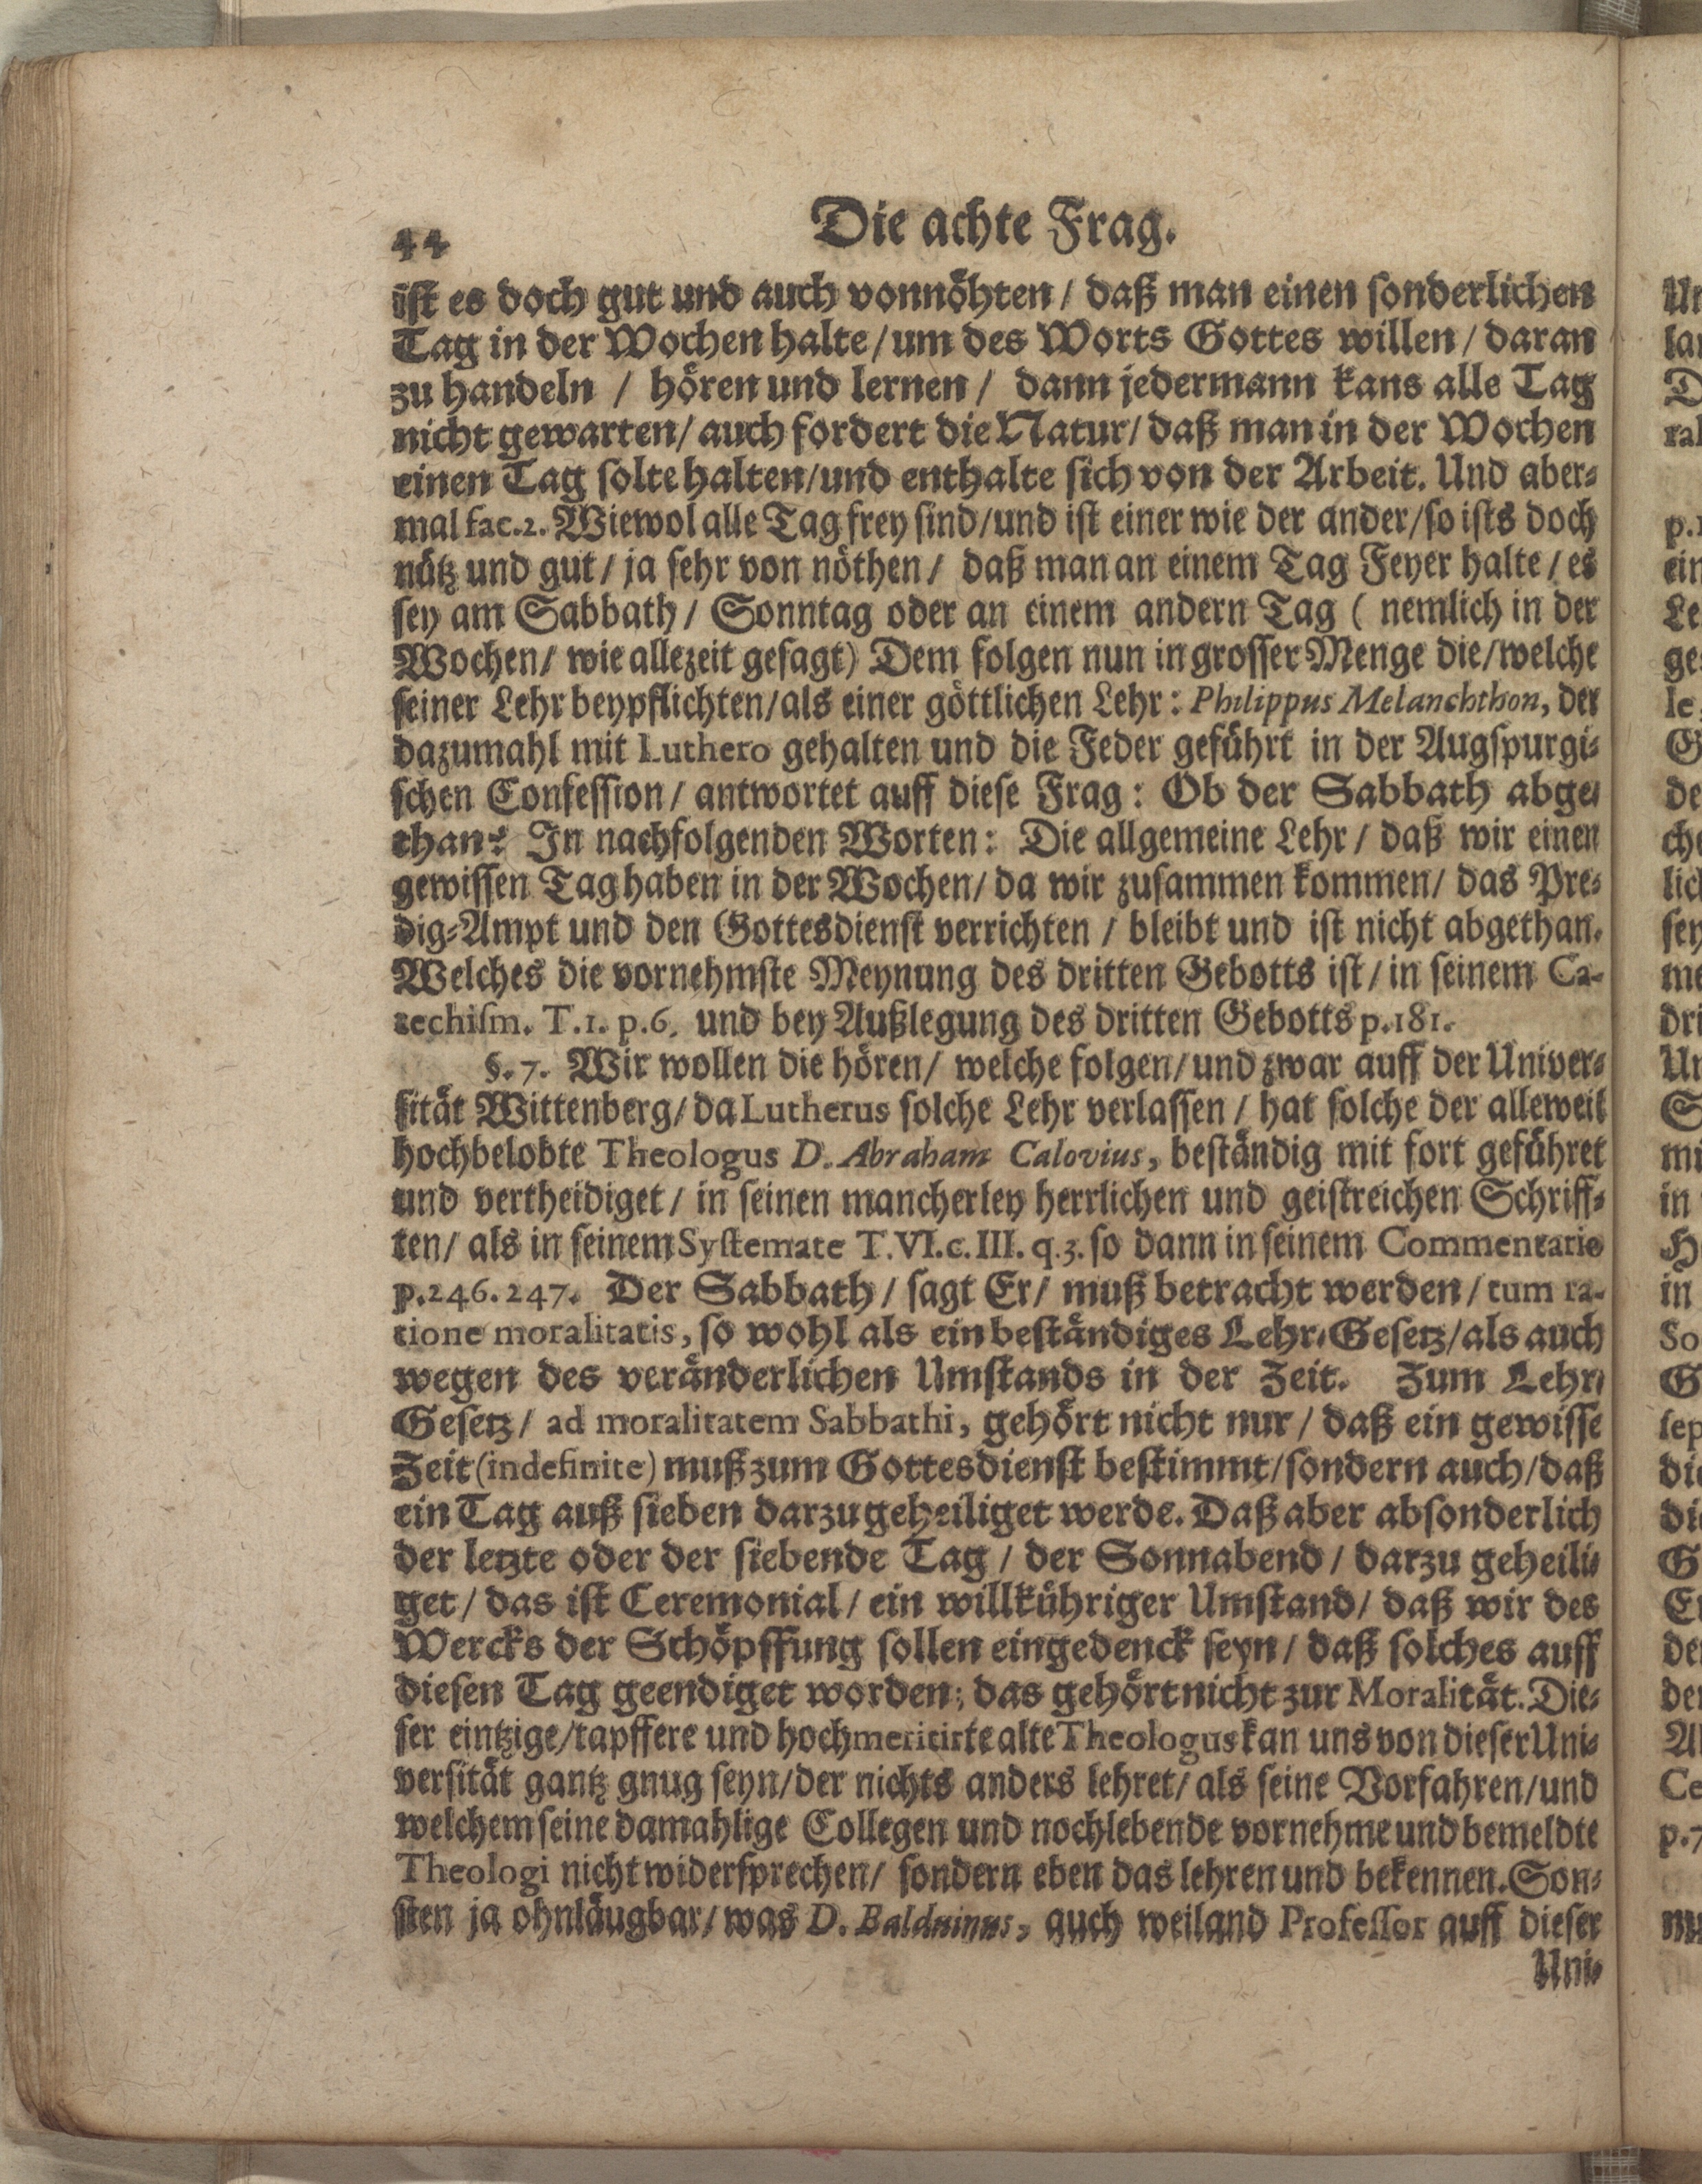 44
Die achte Frag.
ist es doch gut und auch vonnöhten / daß man einen sonderlichen
Tag in der Wochen halte / um des Worts Gottes willen / daran
zu handeln / hören und lernen / dann jedermann kans alle Tag
nicht gewarten / auch fordert die Natur / daß man in der Wochen
einen Tag solte halten / und enthalte sich von der Arbeit. Und aber-
mal fac. 2. Wiewol alle Tag frey sind / und ist einer wie der ander / so ists doch
nütz und gut / ja sehr von nöthen / daß man an einem Tag Feyer halte / es
sey am Sabbath / Sonntag oder an einem andern Tag ( nemlich in der
Wochen / wie allezeit gesagt) Dem folgen nun in grosser Menge die / welche
seiner Lehr beypflichten / als einer göttlichen Lehr : Philippus Melanchthon, der
dazumahl mit Luthero gehalten und die Feder geführt in der Augspurgi-
schen Confession / antwortet auff diese Frag : Ob der Sabbath abge-
than? In nachfolgenden Worten : Die allgemeine Lehr / daß wir einen
gewissen Tag haben in der Wochen / da wir zusammen kommen / das Pre-
dig-Ampt und den Gottesdienst verrichten / bleibt und ist nicht abgethan.
Welches die vornehmste Meynung des dritten Gebotts ist / in seinem Ca-
techism. T. 1. p. 6. und bey Außlegung des dritten Gebotts p. 181.
§. 7. Wir wollen die hören / welche folgen / und zwar auff der Univer-
sität Wittenberg / da Lutherus solche Lehr verlassen / hat solche der alleweil
hochbelobte Theologus D. Abraham Calovius, beständig mit fort geführet
und vertheidiget / in seinen mancherley herrlichen und geistreichen Schriff-
ten / als in seinem Systemate T. VI. c. III. q. 3. so dann in seinem Commentario
p. 246. 247. Der Sabbath / sagt Er / muß betracht werden / tum ra-
tione moralitatis, so wohl als ein beständiges Lehr-Gesetz / als auch
wegen des veränderlichen Umstands in der Zeit. Zum Lehr-
Gesetz / ad moralitatem Sabbathi, gehört nicht nur / daß ein gewisse
Zeit (indefinite) muß zum Gottesdienst bestimmt / sondern auch / daß
ein Tag auß sieben darzu geheiliget werde. Daß aber absonderlich
der letzte oder der siebende Tag / der Sonnabend / darzu geheili-
get / das ist Ceremonial / ein willkühriger Umstand / daß wir des
Wercks der Schöpffung sollen eingedenck seyn / daß solches auff
diesen Tag geendiget worden ; das gehört nicht zur Moralität. Die-
ser eintzige / tapffere und hochmeritirte alte Theologus kan uns von dieser Uni-
versität gantz gnug seyn / der nichts anders lehret / als seine Vorfahren / und
welchem seine damahlige Collegen und nochlebende vornehme und bemeldte
Theologi nicht widersprechen / sondern eben das lehren und bekennen. Son-
sten ja ohnläugbar / was D. Balduinus, auch weiland Professor auff dieser
Uni-